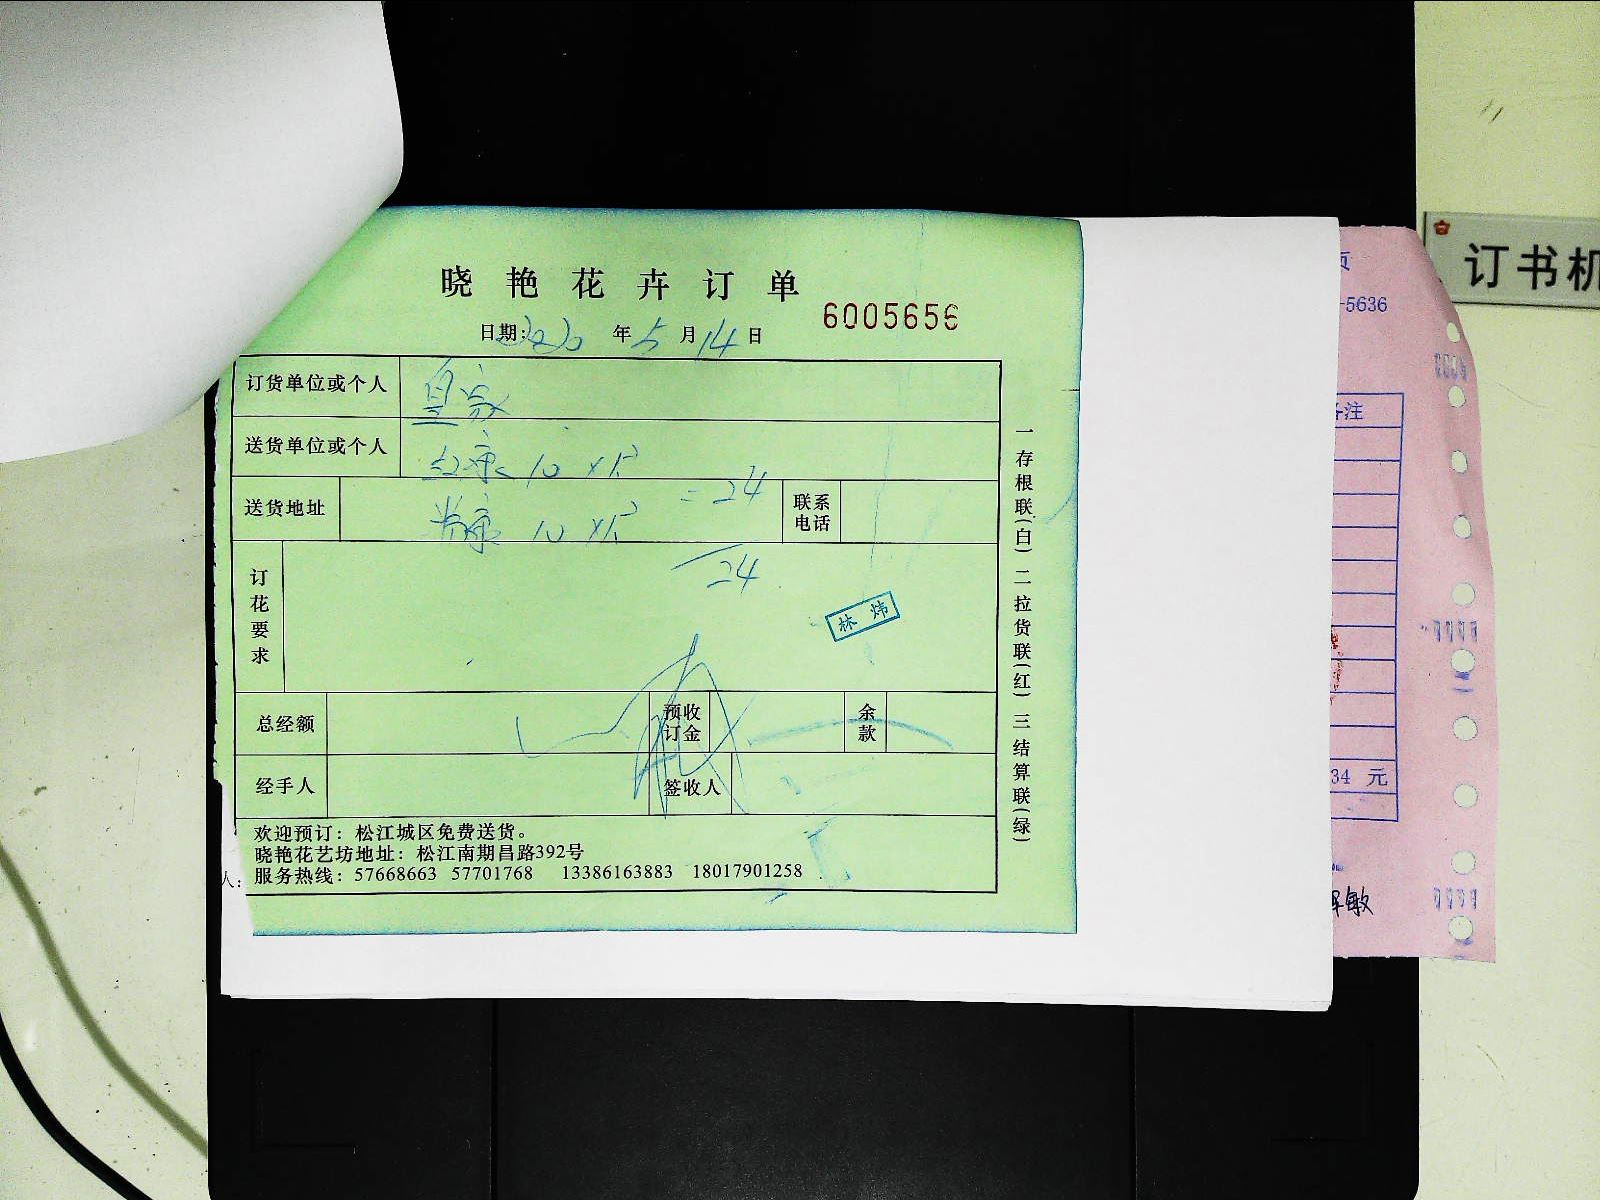 晓艳花卉订单
6005656
日期: 2020 年 5 月 14 日
订货单位或个人
送货单位或个人
10 x 1.2
送货地址
= 24
联系电话
10 x 1.2
24
订花要求
林炜
总经额
预收订金
余款
经手人
签收人
欢迎预订：松江城区免费送货。
晓艳花艺坊地址：松江南期昌路392号
服务热线：57668663 57701768 13386163883 18017901258
一存根联(白) 二拉货联(红) 三结算联(绿)
人：
页
-5636
备注
34 元
敏
订书机